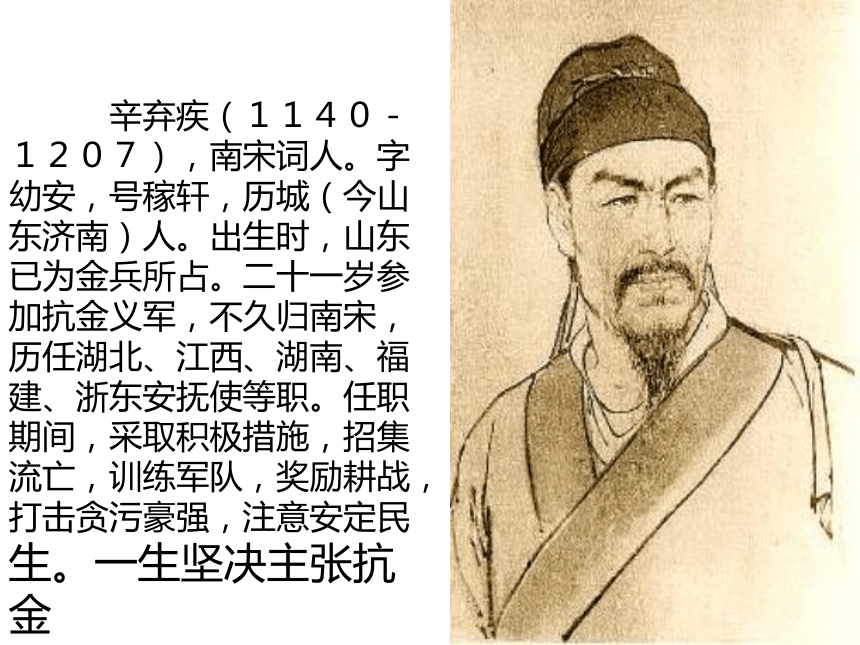 辛弃疾（１１４０－
１２０７），南宋词人。字
幼安，号稼轩，历城（今山
东济南）人。出生时，山东
已为金兵所占。二十一岁参
加抗金义军，不久归南宋，
历任湖北、江西、湖南、福
建、浙东安抚使等职。任职
期间，采取积极措施，招集
流亡，训练军队，奖励耕战，
打击贪污豪强，注意安定民
生。一生坚决主张抗
金